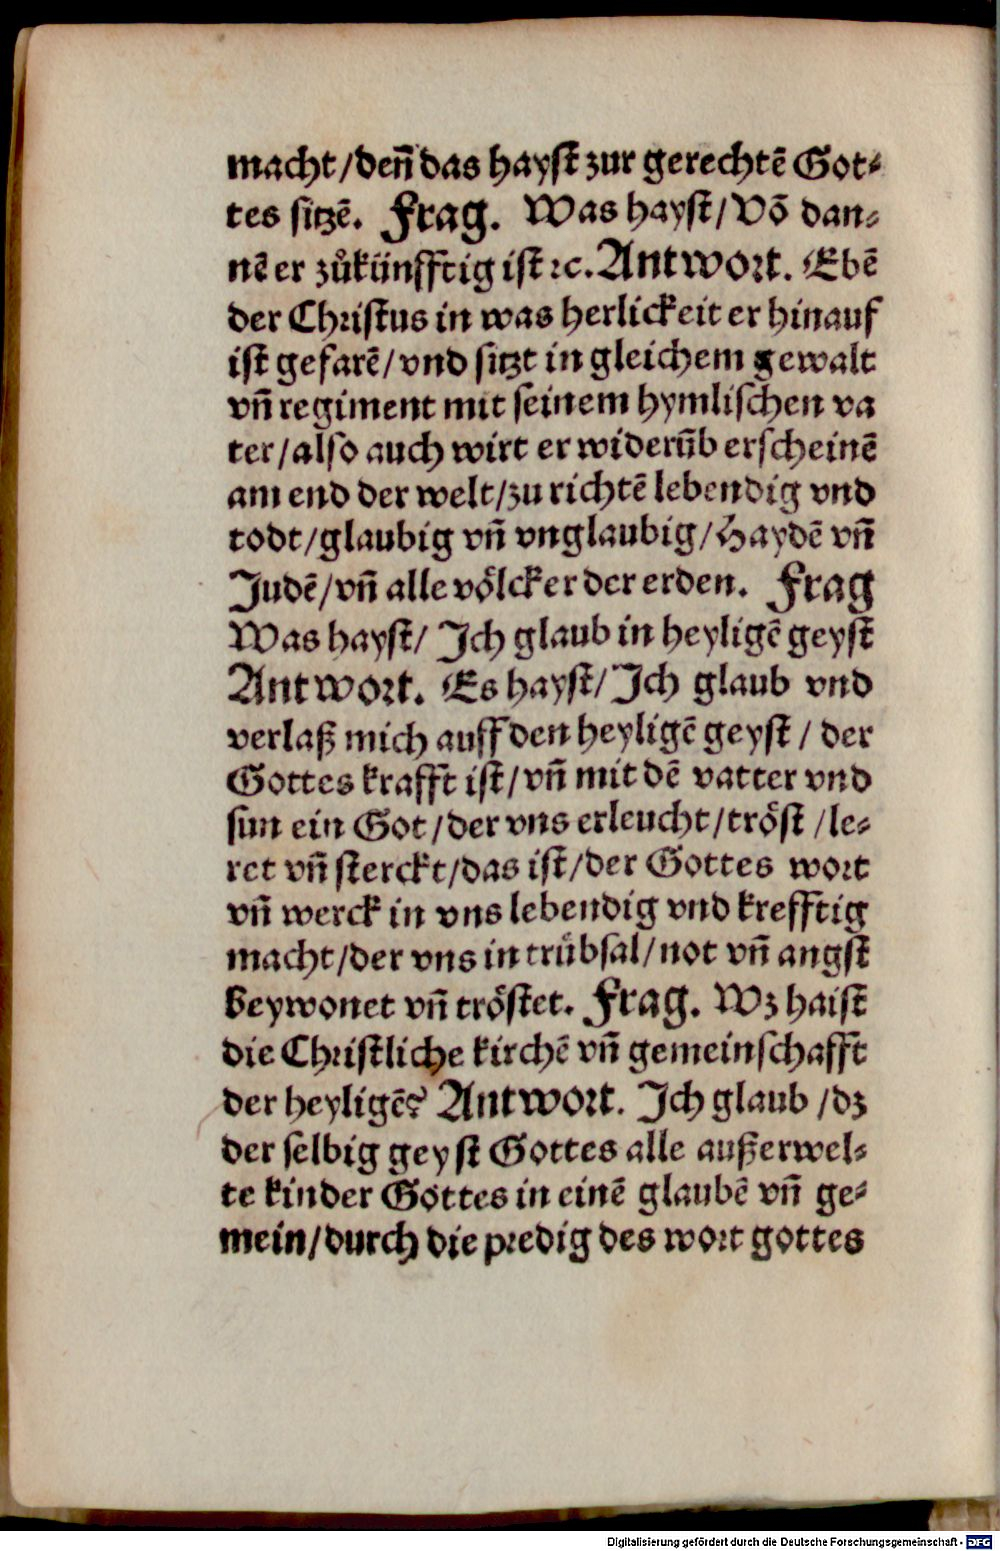 macht/deñ das hayst zur gerechtē Got⸗
tes sitzē. Frag. Was hayst/Võ dan⸗
nē er zůkünfftig ist ꝛc. Antwort. Ebē
der Christus in was herlickeit er hinauf
ist gefarē/vnd sitzt in gleichem gewalt
vñ regiment mit seinem hymlischen va
ter/also auch wirt er widerūb erscheinē
am end der welt/zu richtē lebendig vnd
todt/glaubig vñ vnglaubig/Haydē vñ
Judē/vñ alle völcker der erden. Frag
Was hayst/ Ich glaub in heyligē geyst
Antwort. Es hayst/Ich glaub vnd
verlaß mich auff den heyligē geyst/ der
Gottes krafft ist/vñ mit dē vatter vnd
sun ein Got/der vns erleucht/tröst /le⸗
ret vñ sterckt/das ist/der Gottes wort
vñ werck in vns lebendig vnd krefftig
macht/der vns in trübsal/not vñ angst
beywonet vñ tröstet. Frag. Wz haist
die Christliche kirchē vñ gemeinschafft
der heyligē? Antwort. Ich glaub /dz
der selbig geyst Gottes alle außerwel⸗
te kinder Gottes in einē glaubē vñ ge⸗
mein/durch die predig des wort gottes
Digitalisierung gefördert durch die Deutsche Forschungsgemeinschaft - DFG